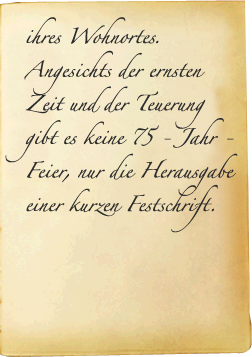 ihres Wohnortes.
Angesichts der ernsten
Zeit und der Teuerung
gibt es keine 75 - Jahr -
Feier, nur die Herausgabe
einer kurzen Festschrift.